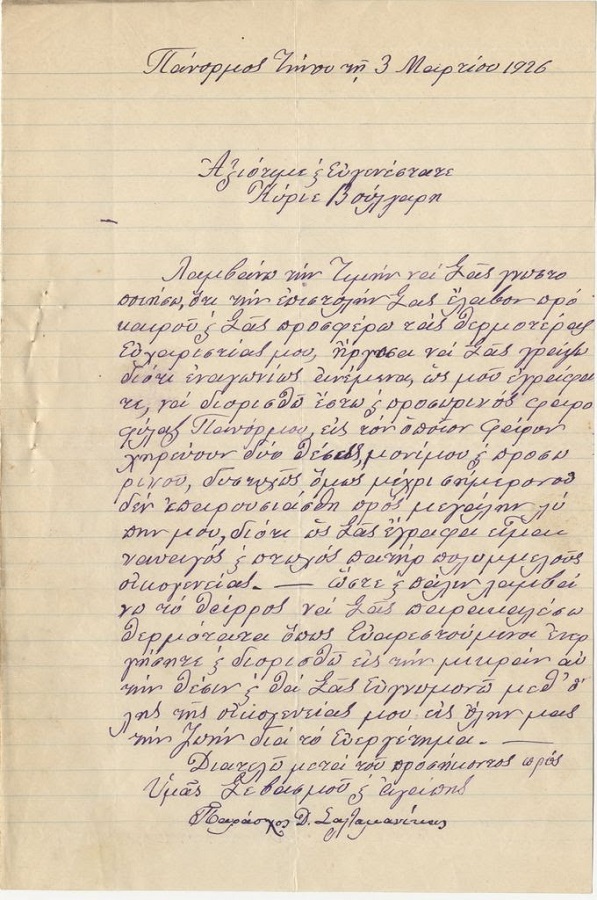 Πάνορμος Τήνου τῇ 3 Μαρτίου 1926
Ἀξιότιμε ϗ Εὐγενέστατε
Κύριε Βούλγαρη
Λαμβάνω τὴν Τιμὴν νὰ Σᾶς γνωστο
ποιήσω, ὅτι τὴν ἐπιστολήν Σας ἔλαβον πρὸ
καιροῦ ϗ Σᾶς προσφέρω τὰς θερμοτέρας
Εὐχαριστίας μου, ἤργησα νὰ Σᾶς γράψω
διότι ἐναγωνίως ἀνέμενα, ὡς μοῦ ἐγράφα
τε, νὰ διορισθῶ ἔστω ϗ προσωρινὸς φαρο
φύλαξ Πανόρμου, εἰς τὸν ὁποῖον φάρον
χηρεύουν δύο θέσεις, μονίμου ϗ προσω
ρινοῦ, δυστυχῶς ὅμως μέχρι σήμερον οὐ
δὲν ἐπαρουσιάσθη πρὸς μεγάλην λύ
πην μου, διότι ὡς Σᾶς ἔγραφα εἶμαι
ναυαγὸς ϗ πτωχὸς πατὴρ πολυμμελοῦς
οἰκογενείας. — ὥστε ϗ πάλιν λαμβά
νω τὸ θάρρος νὰ Σᾶς παρακαλέσω
θερμότατα ὅπως Εὐαρεστούμενοι ἐνερ
γήσητε ϗ διορισθῶ εἰς τὴν μικρὰν αὐ
τὴν θέσιν ϗ θὰ Σᾶς Εὐγνωμονῶ μεθ' ὅ
λης τῆς οἰκογενείας μου εἰς ὅλην μας
τὴν Ζωὴν διὰ τὸ εὐεργέτημα. —
Διατελῶ μετὰ τοῦ προσήκοντος πρὸς
Ὑμᾶς Σεβασμοῦ ϗ ἀγάπης
Παράσχος Δ. Σαλταμανίκας